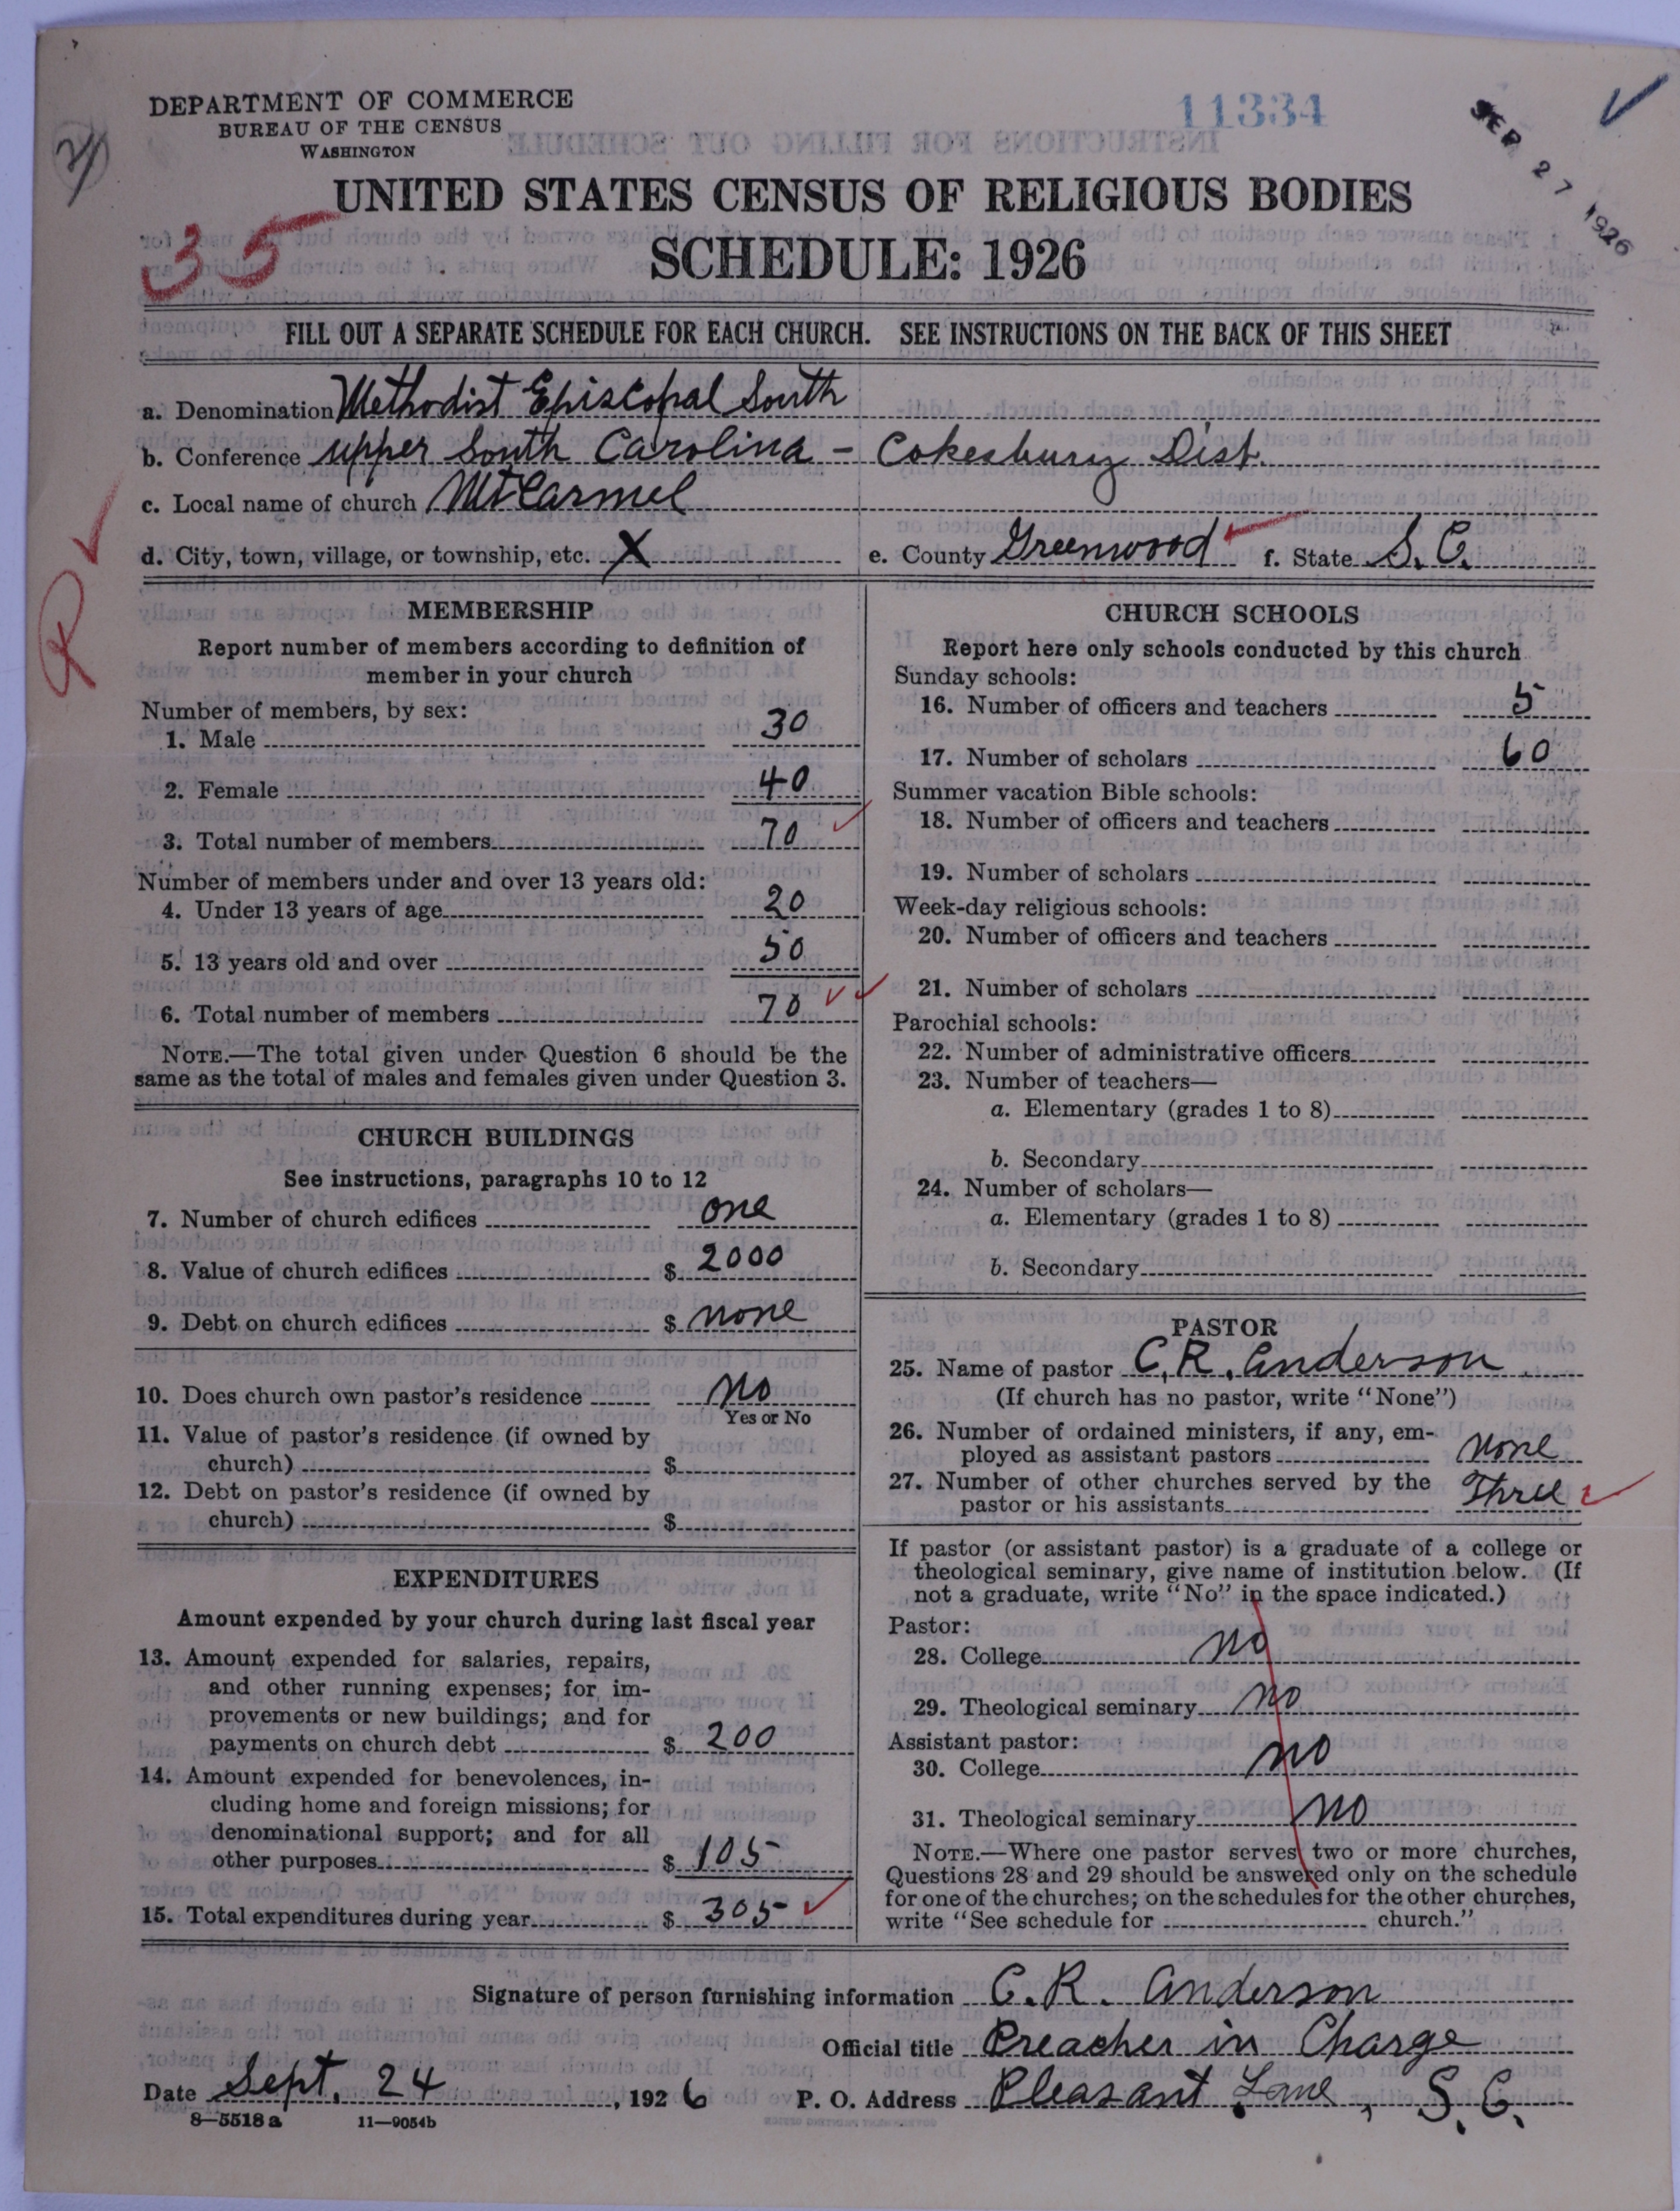 DEPARTMENT OF COMMERCE
BUREAU OF THE CENSUS
WASHINGTON
11334
SEP 27 1926
UNITED STATES CENSUS OF RELIGIOUS BODIES
35
SCHEDULE: 1926
FILL OUT A SEPARATE SCHEDULE FOR EACH CHURCH. SEE INSTRUCTIONS ON THE BACK OF THIS SHEET
a. Denomination Methodist Episcopal South
b. Conference upper South Carolina - Cokesbury Dist.
c. Local name of church Mt Carmel
d. City, town, village, or township, etc. X e. County Greenwood f. State S. C.
R
MEMBERSHIP
Report number of members according to definition of
member in your church
Number of members, by sex:
1. Male 30
2. Female 40
3. Total number of members 70
Number of members under and over 13 years old:
4. Under 13 years of age 20
5. 13 years old and over 50
6. Total number of members 70
NOTE.—The total given under Question 6 should be the
same as the total of males and females given under Question 3.
CHURCH BUILDINGS
See instructions, paragraphs 10 to 12
7. Number of church edifices one
8. Value of church edifices $ 2000
9. Debt on church edifices $ none
10. Does church own pastor's residence No
Yes or No
11. Value of pastor's residence (if owned by
church) $
12. Debt on pastor's residence (if owned by
church) $
EXPENDITURES
Amount expended by your church during last fiscal year
13. Amount expended for salaries, repairs,
and other running expenses; for im-
provements or new buildings; and for
payments on church debt $ 200
14. Amount expended for benevolences, in-
cluding home and foreign missions; for
denominational support; and for all
other purposes $ 105
15. Total expenditures during year $ 305
CHURCH SCHOOLS
Report here only schools conducted by this church
Sunday schools:
16. Number of officers and teachers 5
17. Number of scholars 60
Summer vacation Bible schools:
18. Number of officers and teachers
19. Number of scholars
Week-day religious schools:
20. Number of officers and teachers
21. Number of scholars
Parochial schools:
22. Number of administrative officers
23. Number of teachers—
a. Elementary (grades 1 to 8)
b. Secondary
24. Number of scholars—
a. Elementary (grades 1 to 8)
b. Secondary
PASTOR
25. Name of pastor C. R. Anderson
(If church has no pastor, write "None")
26. Number of ordained ministers, if any, em-
ployed as assistant pastors none
27. Number of other churches served by the
pastor or his assistants Three
If pastor (or assistant pastor) is a graduate of a college or
theological seminary, give name of institution below. (If
not a graduate, write "No" in the space indicated.)
Pastor:
28. College no
29. Theological seminary no
Assistant pastor:
30. College no
31. Theological seminary no
NOTE.—Where one pastor serves two or more churches,
Questions 28 and 29 should be answered only on the schedule
for one of the churches; on the schedules for the other churches,
write "See schedule for church."
Signature of person furnishing information C. R. Anderson
Official title Preacher in Charge
Date Sept. 24, 1926 P. O. Address Pleasant Lane, S. C.
8—5518 a 11—9054b